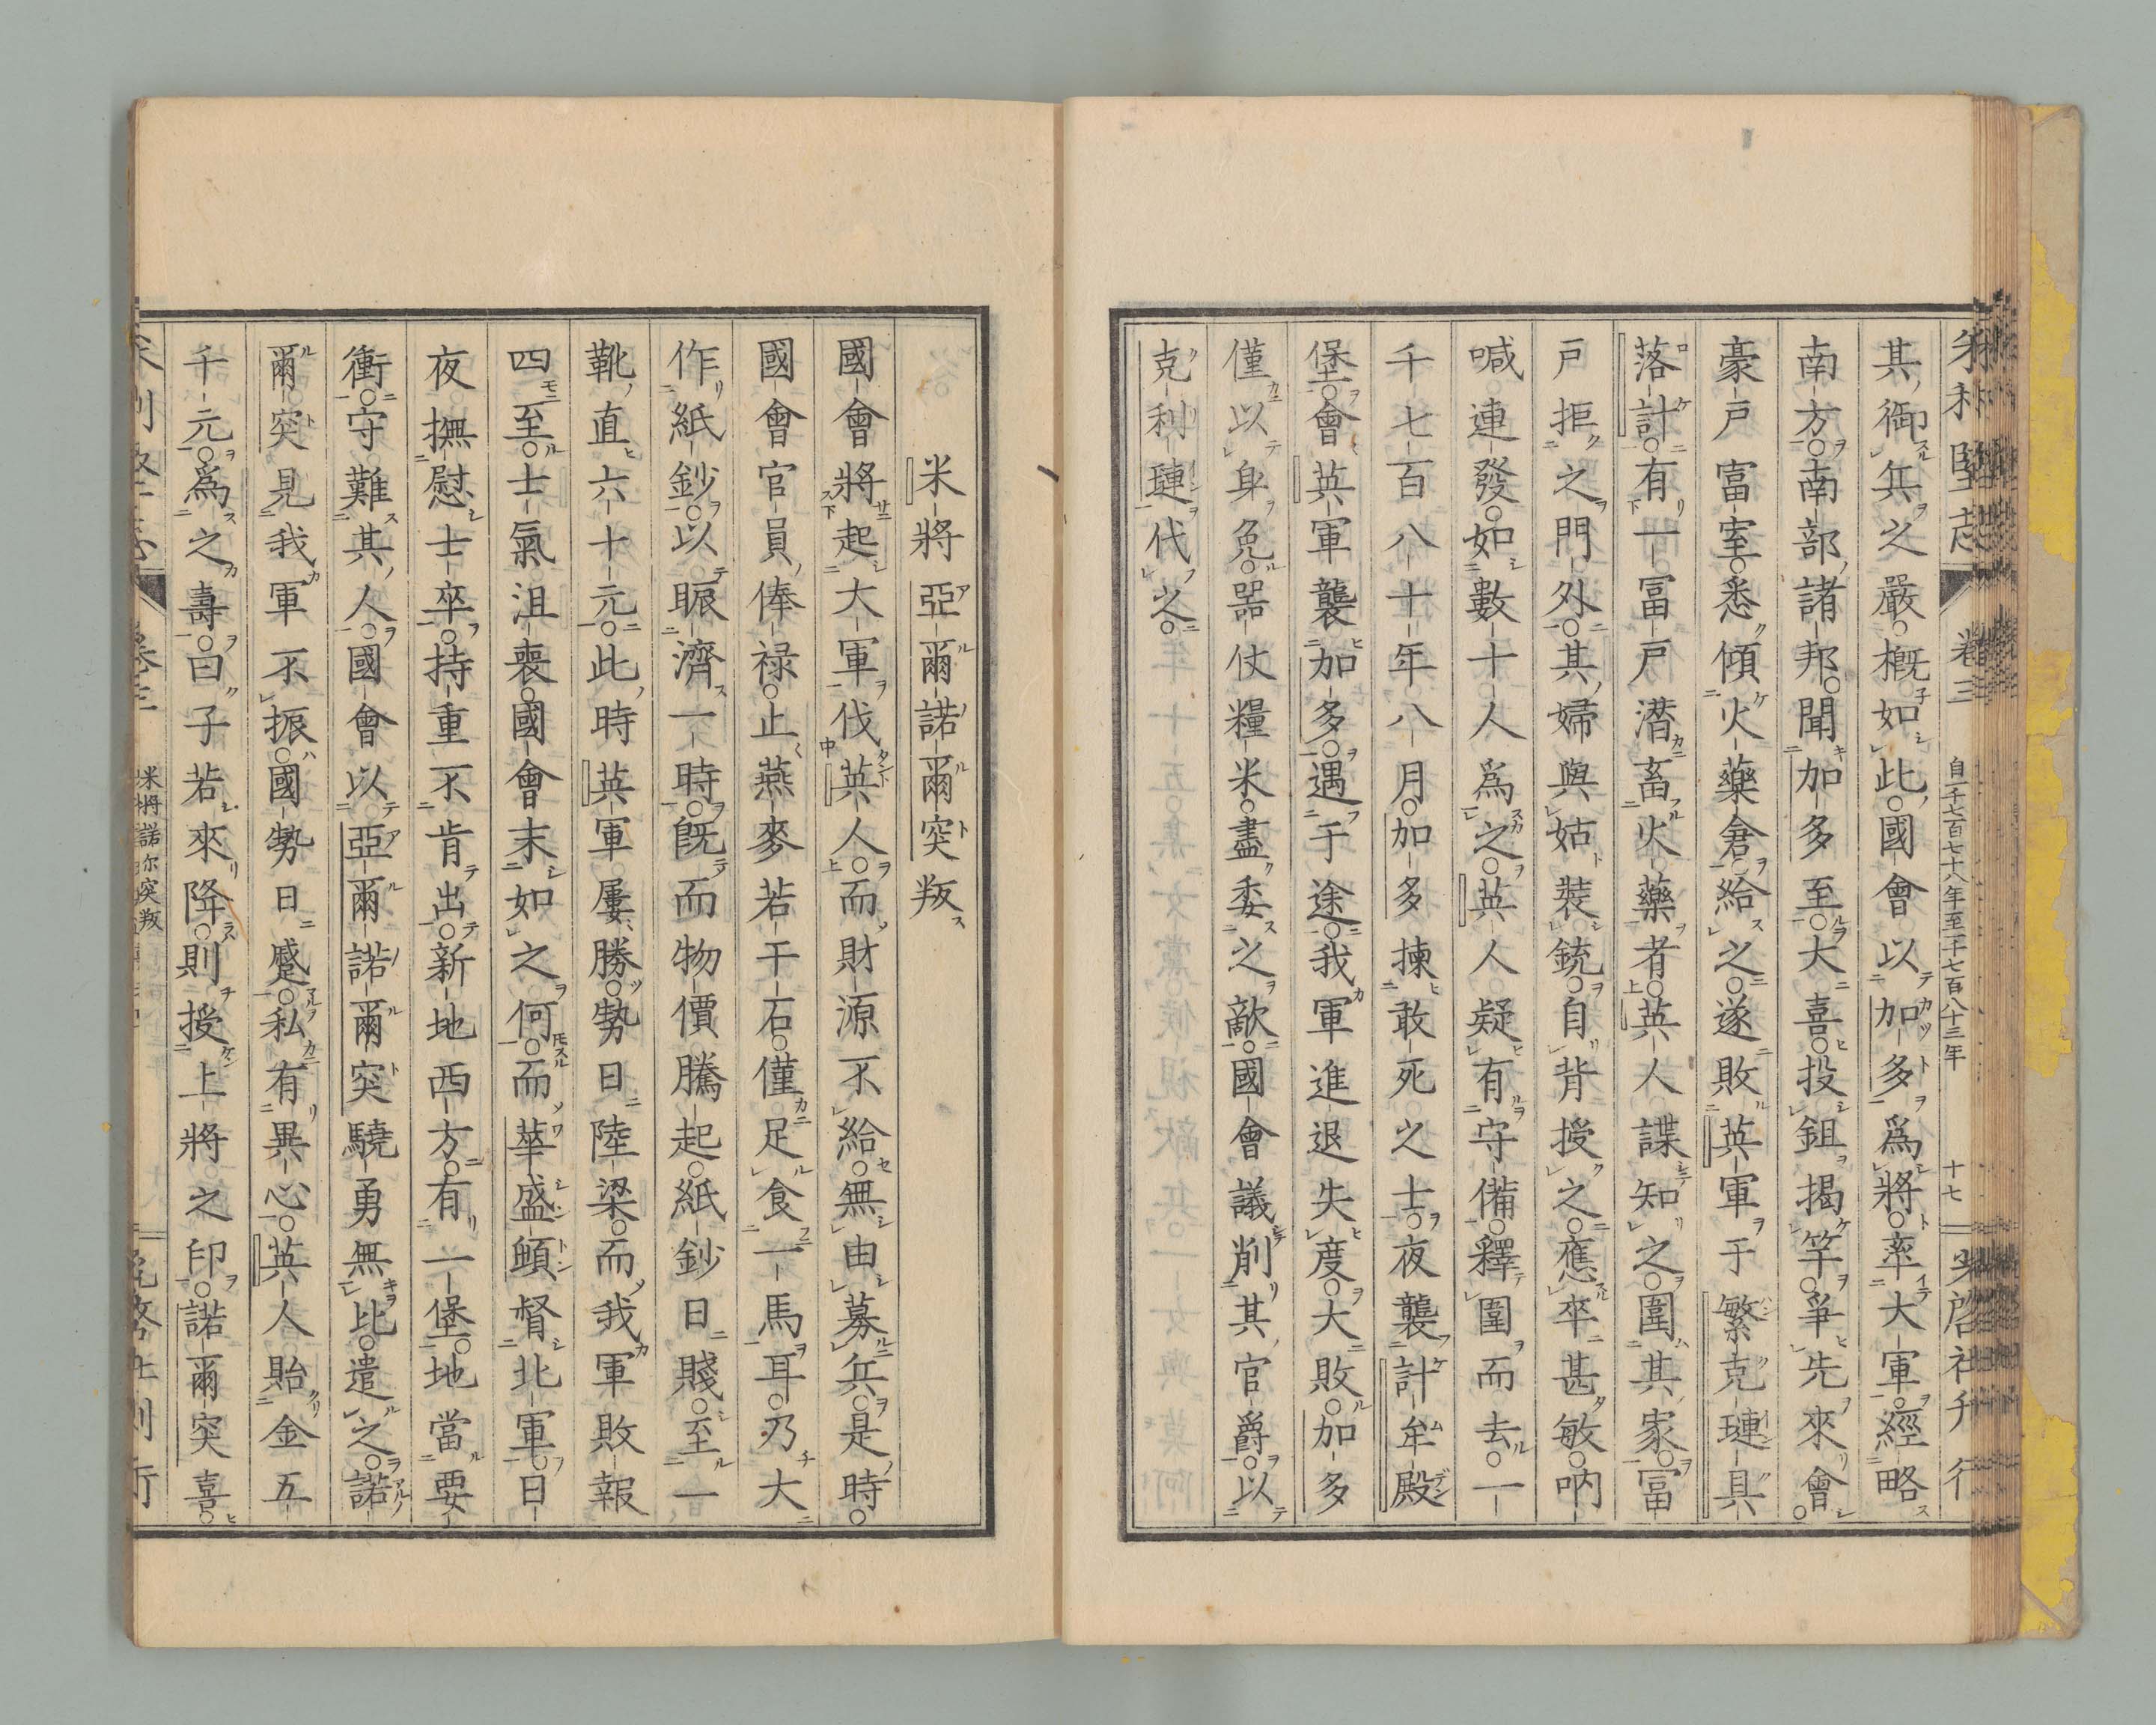 米利堅志 卷三 自千七百七十八年至千七百八十三年 十七 啓社刋行
其御兵之嚴。概如此。國會以加多爲將。率大軍。經略
南方。南部諸邦。聞加多至。大喜。投鉏揭竿。爭先來會。
豪戸富室。悉傾火藥倉給之。遂敗英軍于繁克璉具
落計。有一冨戸潜畜火藥者。英人諜知之。圍其家。冨
戸拒之門外。其婦與姑裝銃。自背授之。應卒甚敏。吶
喊連發。如數十人爲之。英人疑有守備。釋圍而去。一
千七百八十年八月。加多揀敢死之士。夜襲計牟殿
堡。會英軍襲加多。遇于途。我軍進退失度。大敗。加多
僅以身免。器仗糧米。盡委之敵。國會議削其官爵。以
克利璉代之。
米將亞爾諾爾突叛
國會將起大軍伐英人。而財源不給。無由募兵。是時。
國會官員俸祿。止燕麥若干石。僅足食一馬耳。乃大
作紙鈔。以賑濟一時。既而物價騰起。紙鈔日賤。至一
靴直六十元。此時英軍屢勝。勢日陸梁。而我軍敗報
四至。士氣沮喪。國會末如之何。而華盛頓督北軍。日
夜撫慰士卒。持重不肯出。新地西方。有一堡。地當要
衝。守難其人。國會以亞爾諾爾突驍勇無比。遣之。諾
爾突見我軍不振。國勢日蹙。私有異心。英人貽金五
千元。爲之壽。曰。子若來降。則授上將之印。諾爾突喜。
米將諾尔突叛